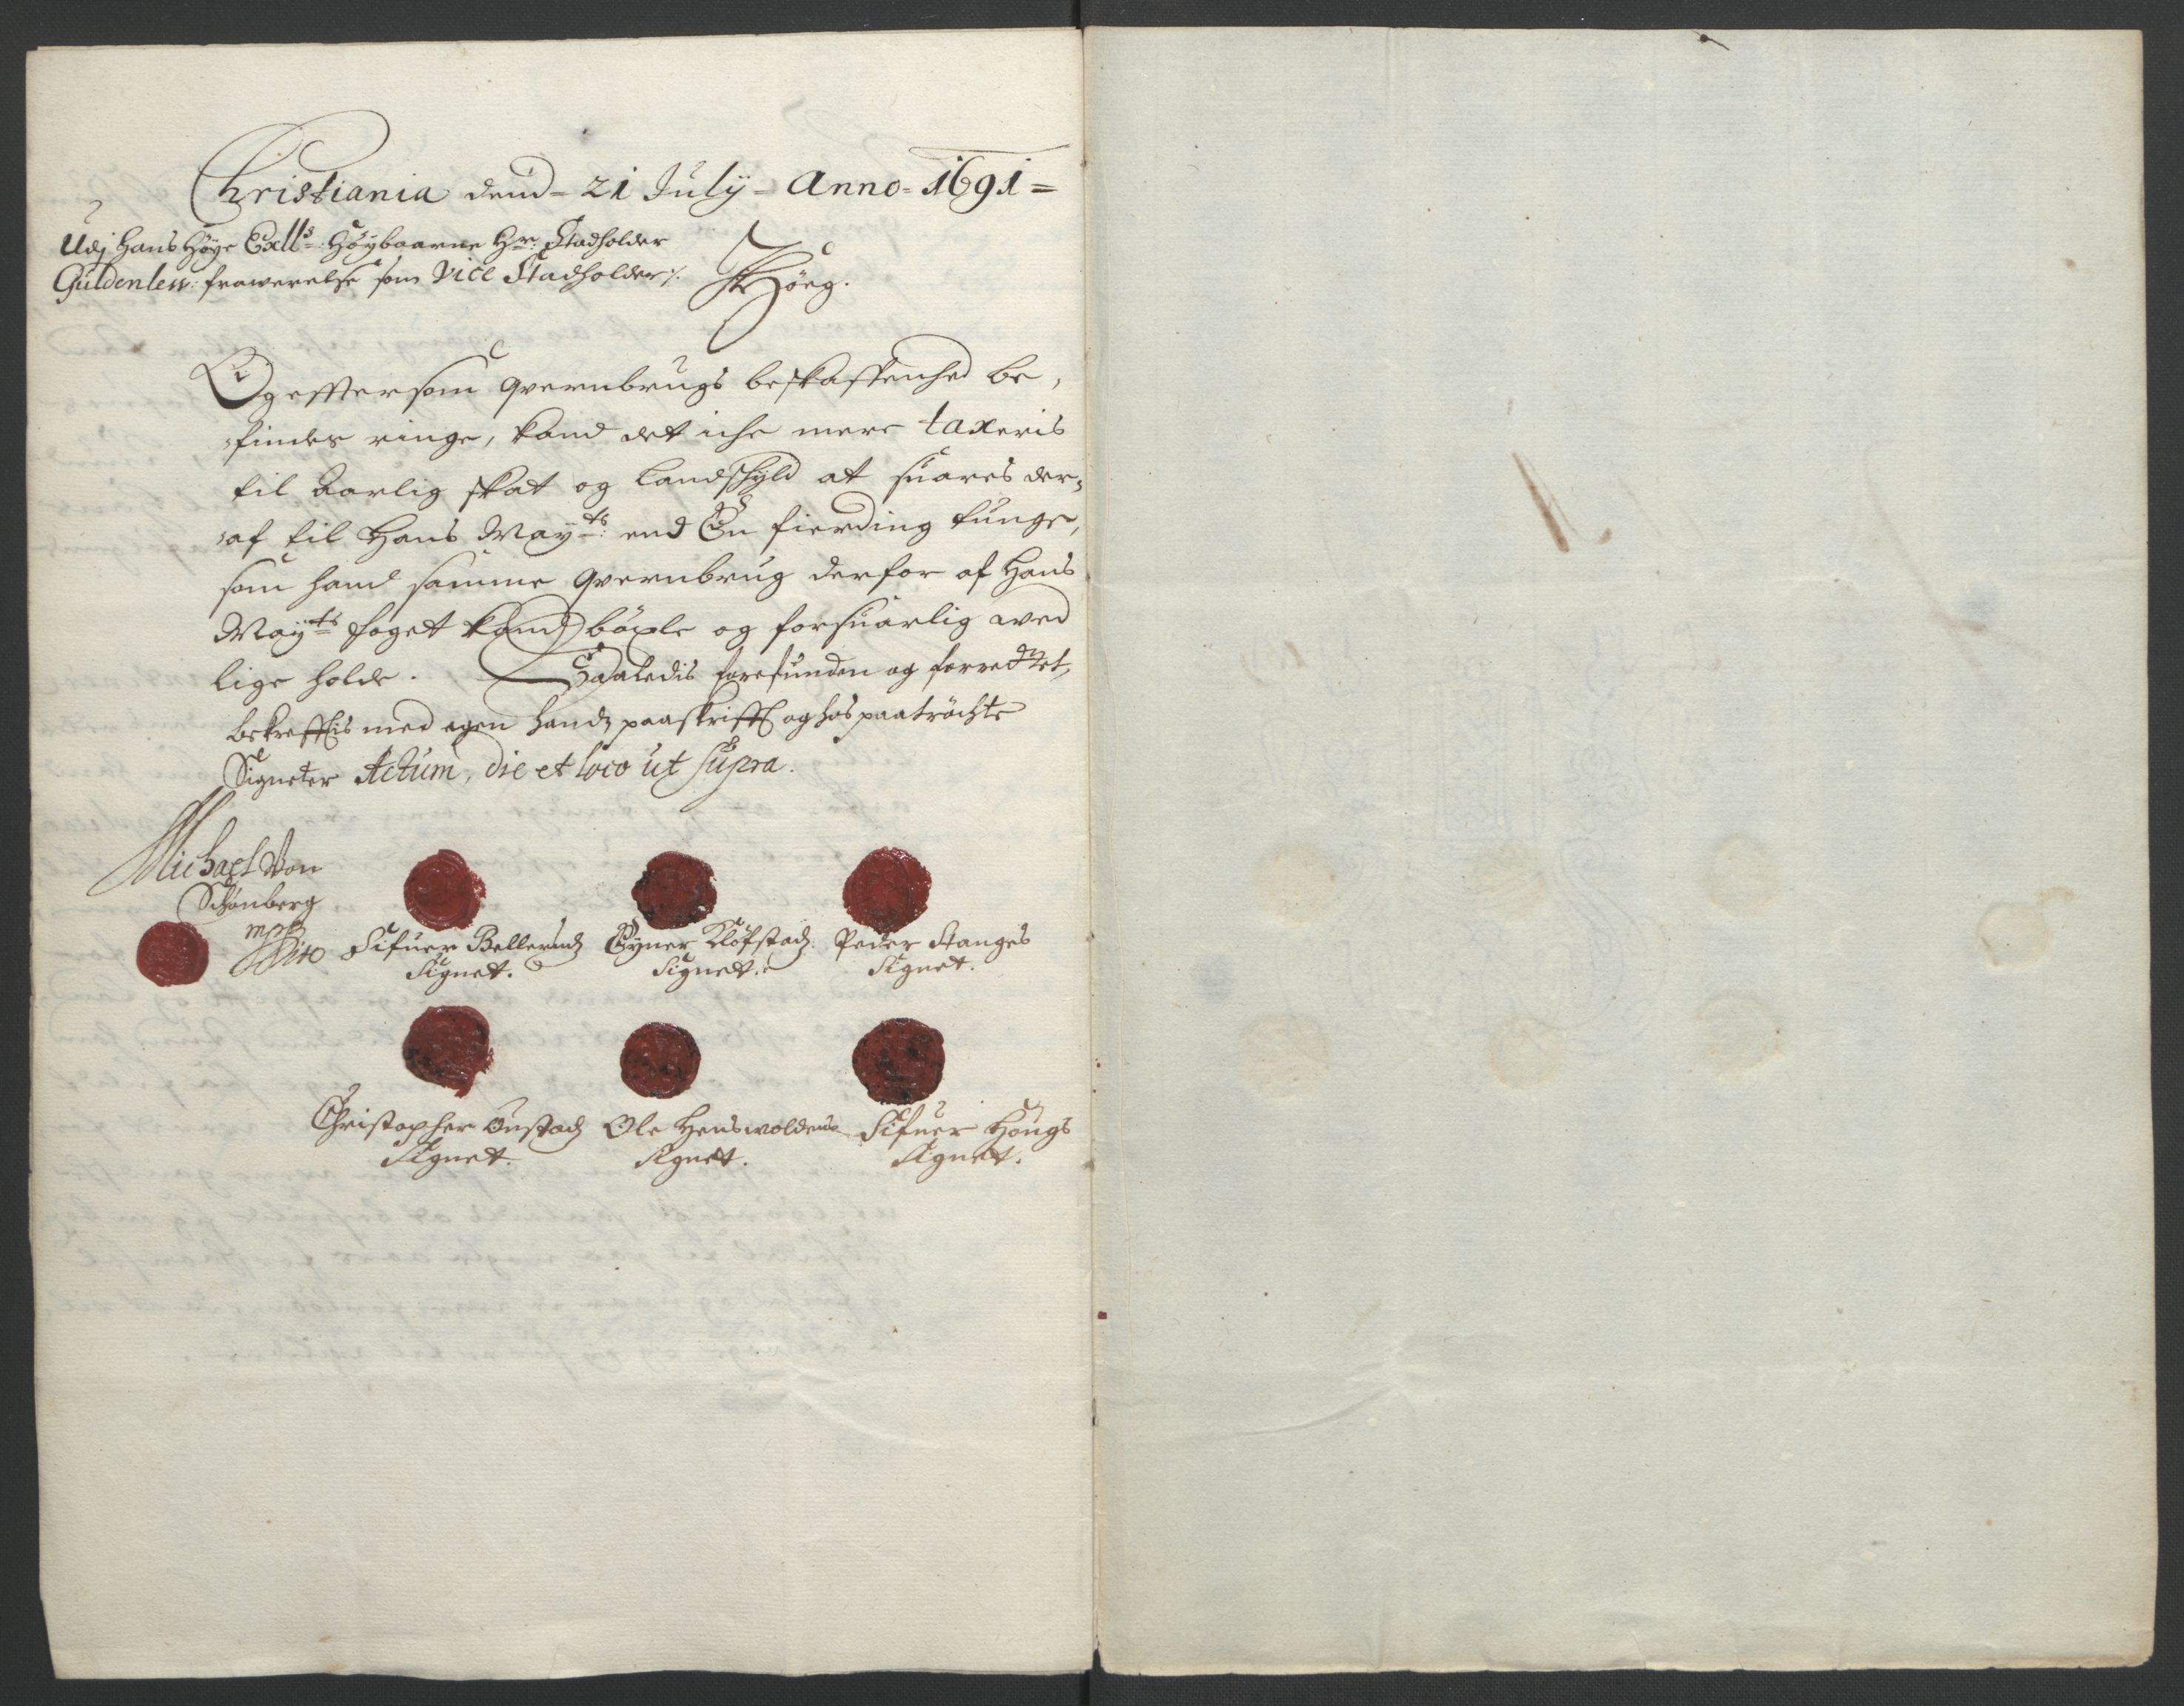 Christiania dend = 21 July = Anno = 1691 =
Udj hans høye Exll:s høybaarne Hr: Stadholder
Güldenlew: frawerelse som Vice Stadholder ⁒
Høeg.
Og effter som qvernbrugs beskaffenhed be,
findes ringe, kand det iche mere taxeris
til Aarlig skat og Landschyld at suares der=
af til Hans May:ts end En fierding tunge,
som hand samme qvernbrug derfor af Hans
May:ts foget kand böxle og forsuarlig wed
lige holde. Saaledis forefunden og forrettet,
bekrefftis med egen handz paaskrifft og hos paatröchte
Signeter Actum, die et loco ut supra.
Michael Von
Schönberg
mpp
Sifuer Bellerudz
Signet.
Eyner Klöfstadz
Signet.
Peder Stanges
Signet.
Christopher Onstadz
Signet.
Ole Henswoldens
Signet.
Sifuer Hougs
Signet.